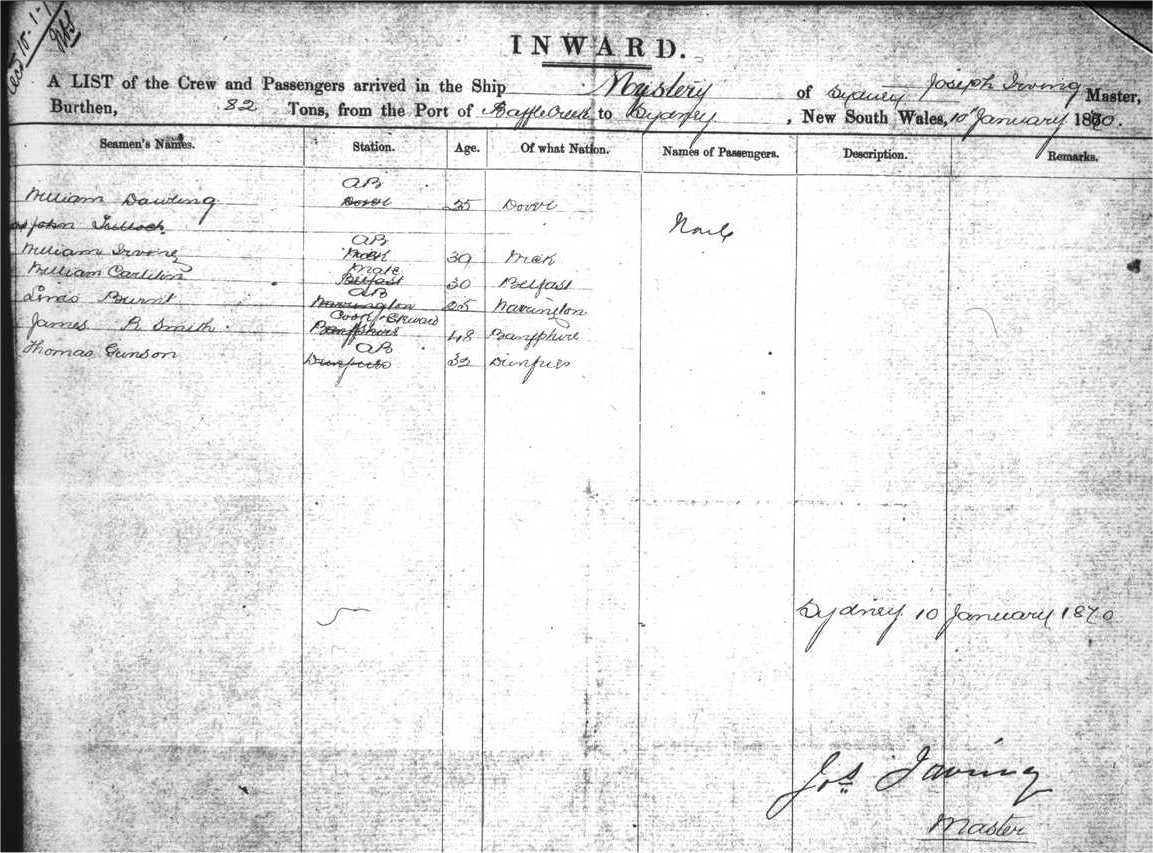 Recd 10-1-7
INWARD.
A LIST of the Crew and Passengers arrived in the Ship Mystery of Sydney Joseph Irving Master,
Burthen, 82 Tons, from the Port of Baffle Creek to Sydney, New South Wales, 10th January 1870.
Seamen's Names. Station. Age. Of what Nation. Names of Passengers. Description. Remarks.
AB
William Dawling Dover 25 Dover
John Tulloch None
AB
William Irvine 39
Mate
William Carliton Belfast 30 Belfast
AB
Burnt Warrington 25 Warrington
Cook & Steward
James R Smith Banffshire 48 Banffshire
AB
Thomas Gunson Dumfries 32 Dumfries
Sydney 10 January 1870
Jos Irving
Master